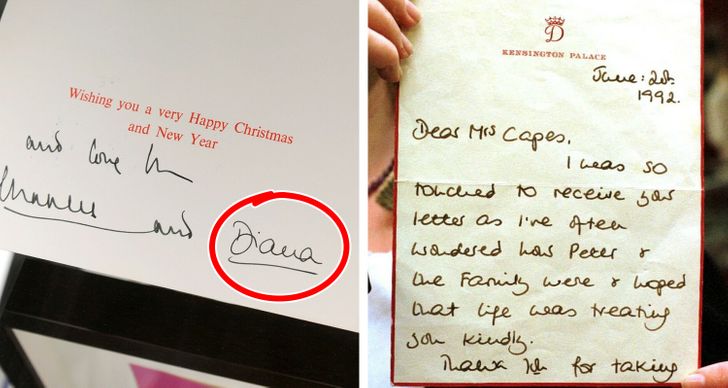 Wishing you a very Happy Christmas
and New Year
and love from
Charles and Diana
D
KENSINGTON PALACE
June: 2nd.
1992.
Dear Mrs Capes,
I was so
touched to receive your
letter as I've often
wondered how Peter &
the Family were & hoped
that life was treating
you kindly.
Thank you for taking